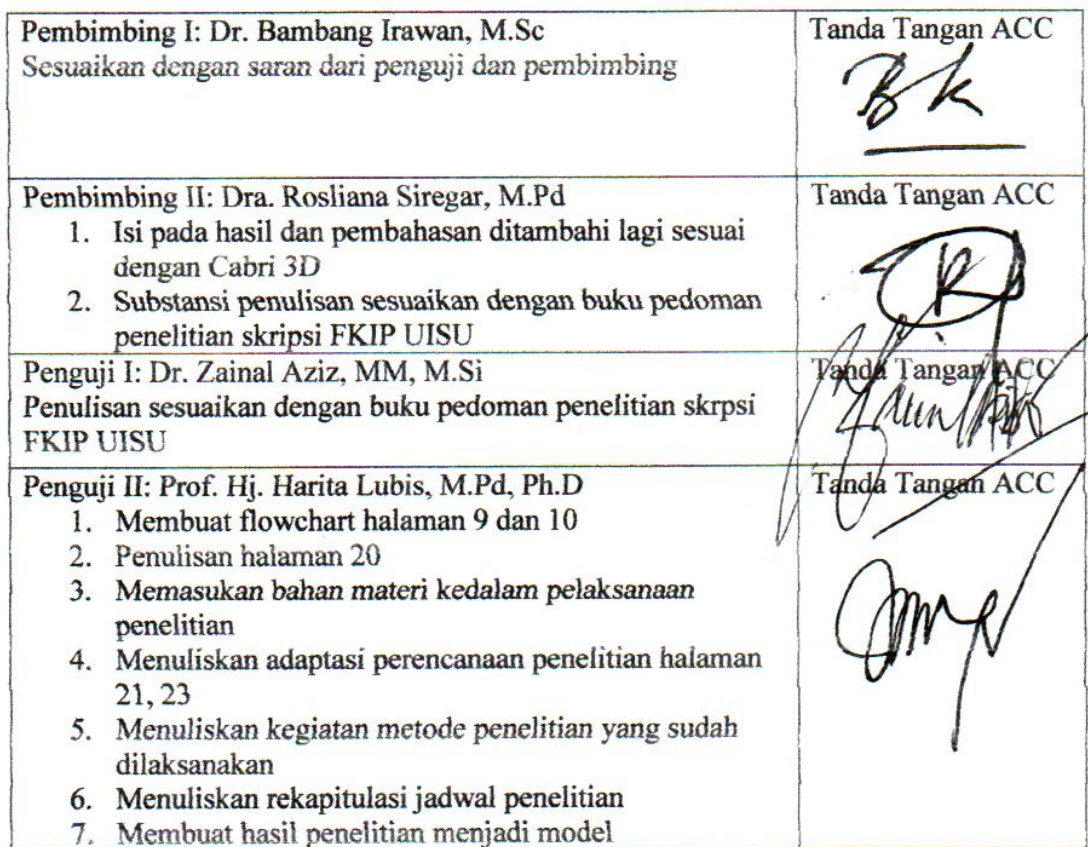 Pembimbing I: Dr. Bambang Irawan, M.Sc
Tanda Tangan ACC
Sesuaikan dengan saran dari penguji dan pembimbing
Pembimbing II: Dra. Rosliana Siregar, M.Pd
Tanda Tangan ACC
1. Isi pada hasil dan pembahasan ditambahi lagi sesuai
dengan Cabri 3D
2. Substansi penulisan sesuaikan dengan buku pedoman
penelitian skripsi FKIP UISU
Penguji I: Dr. Zainal Aziz, MM, M.Si
Tanda Tangan ACC
Penulisan sesuaikan dengan buku pedoman penelitian skrpsi
FKIP UISU
Penguji II: Prof. Hj. Harita Lubis, M.Pd, Ph.D
Tanda Tangan ACC
1. Membuat flowchart halaman 9 dan 10
2. Penulisan halaman 20
3. Memasukan bahan materi kedalam pelaksanaan
penelitian
4. Menuliskan adaptasi perencanaan penelitian halaman
21, 23
5. Menuliskan kegiatan metode penelitian yang sudah
dilaksanakan
6. Menuliskan rekapitulasi jadwal penelitian
7. Membuat hasil penelitian menjadi model